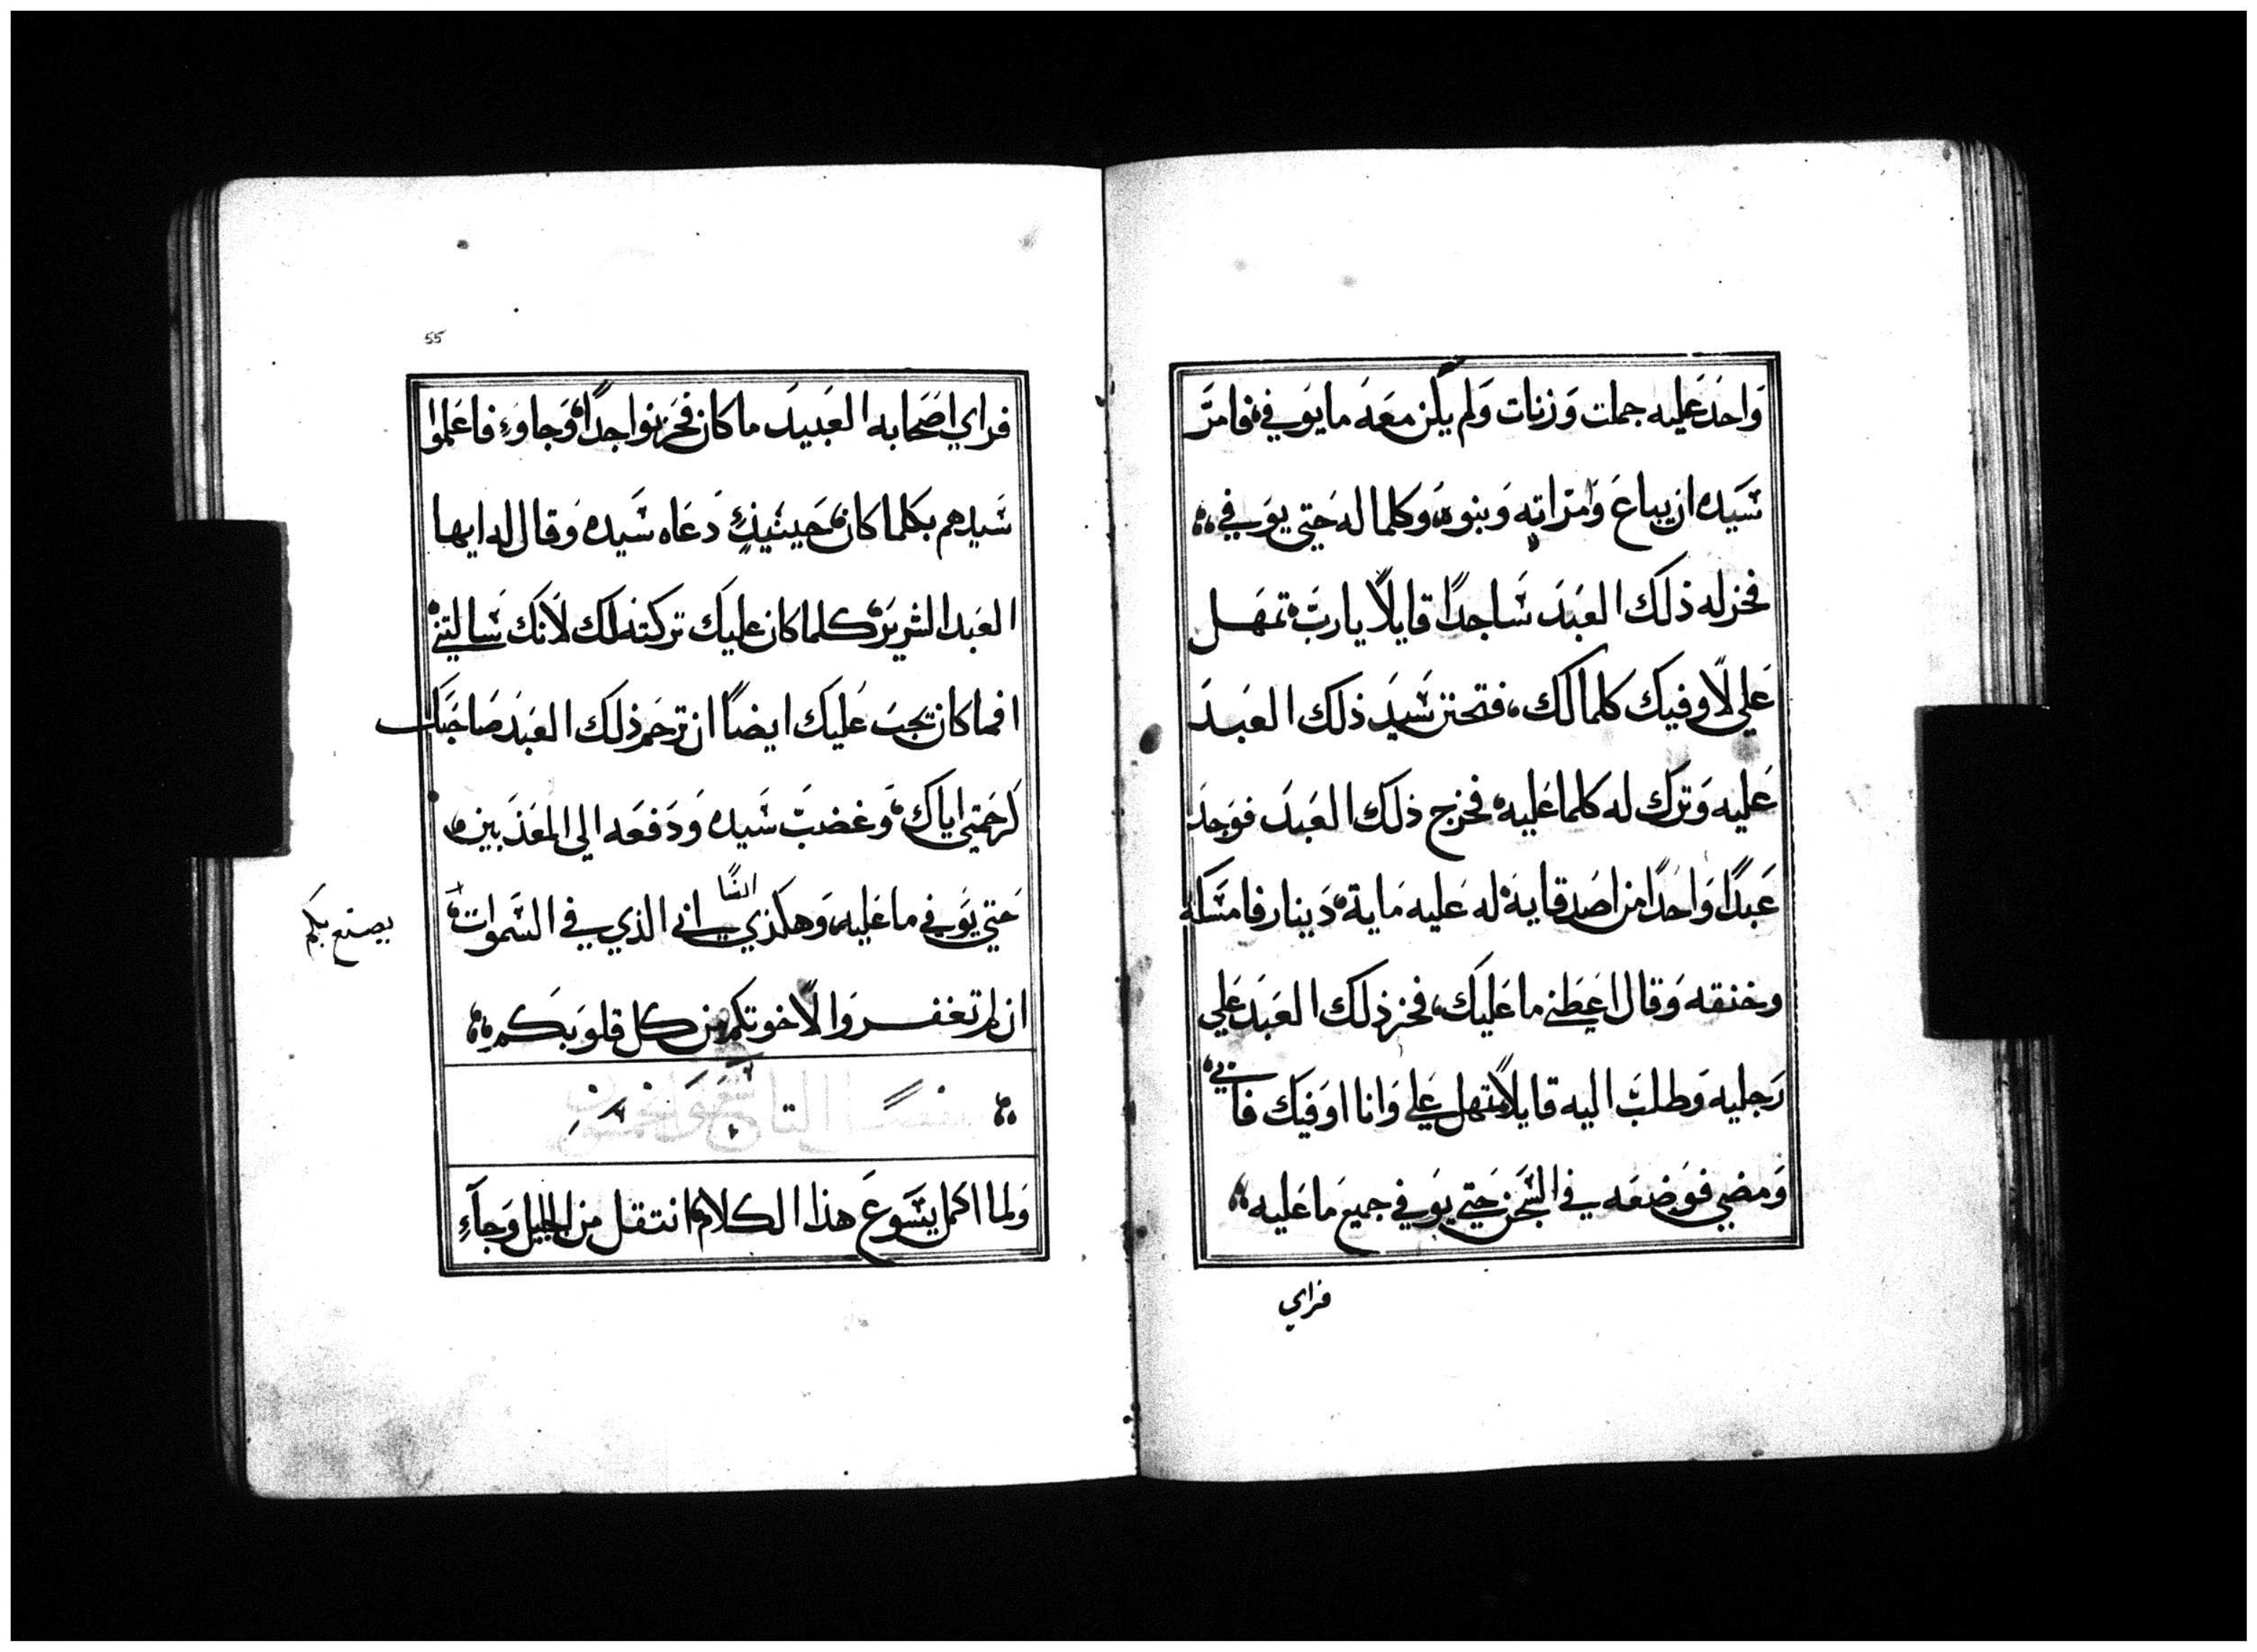 وَاحدَ عَليه جملت وَزنات وَلم يكن معَه ما يوَفي فامرَّ
سَيَده ان يباعَ وَامرَاته وَبنوهُ وَكلما له حَتي يوَفي
فخر له ذلَك العَبدَ سَاجدًا قايلًا يا ربَ تمهَل
عَلي لاوفيَك كلما لَك، فتحنن سَيدَ ذلَك العَبدَ
عَليه وَترَك له كلما عَليه فخرَج ذلَك العَبدَ فوَجدَ
عَبدًا وَاحدًا من اصَدقايه له عَليه مَاية دَينار فامسَكه
وخنقه وَقال اعَطني ما عَليَك، فخر ذلَك العَبدَ عَلي
رَجليه وَطلبَ اليه قايلًا تمهل عَلي وَانا اوَفيَك فا
ني
وَمضي فوَضعَه في السَجن حَتي يوَفي جميعَ مَا عَليه
فراي
55
فراي اصَحابه العَبيدَ ما كان فحَزنوا جدًا وَجاوَء فاعَلموا
سَيدهم بكلما كان حَينيذٍ دَعَاه سَيده وَقال له ايها
العَبد الشرير كلما كان عليَك تركته لَك لانَك سَالتني
افما كان تجبَ عَليَك ايضًا ان ترحَم ذلَك العَبدَ صَاحبَك
كرحَمتي اياَك وَغضبَ سَيده وَدَفعَه الي المعَذبَين
حَتي يوَفي ما عَليه وَهكذي
اني الذي في السَموات
يصنع بكم
ان لم تغفروَا لاخوتكم من كل قلوبَكم
وَلما اكمل يسَوعَ هذا الكلام انتقل من الجليل وَجآء